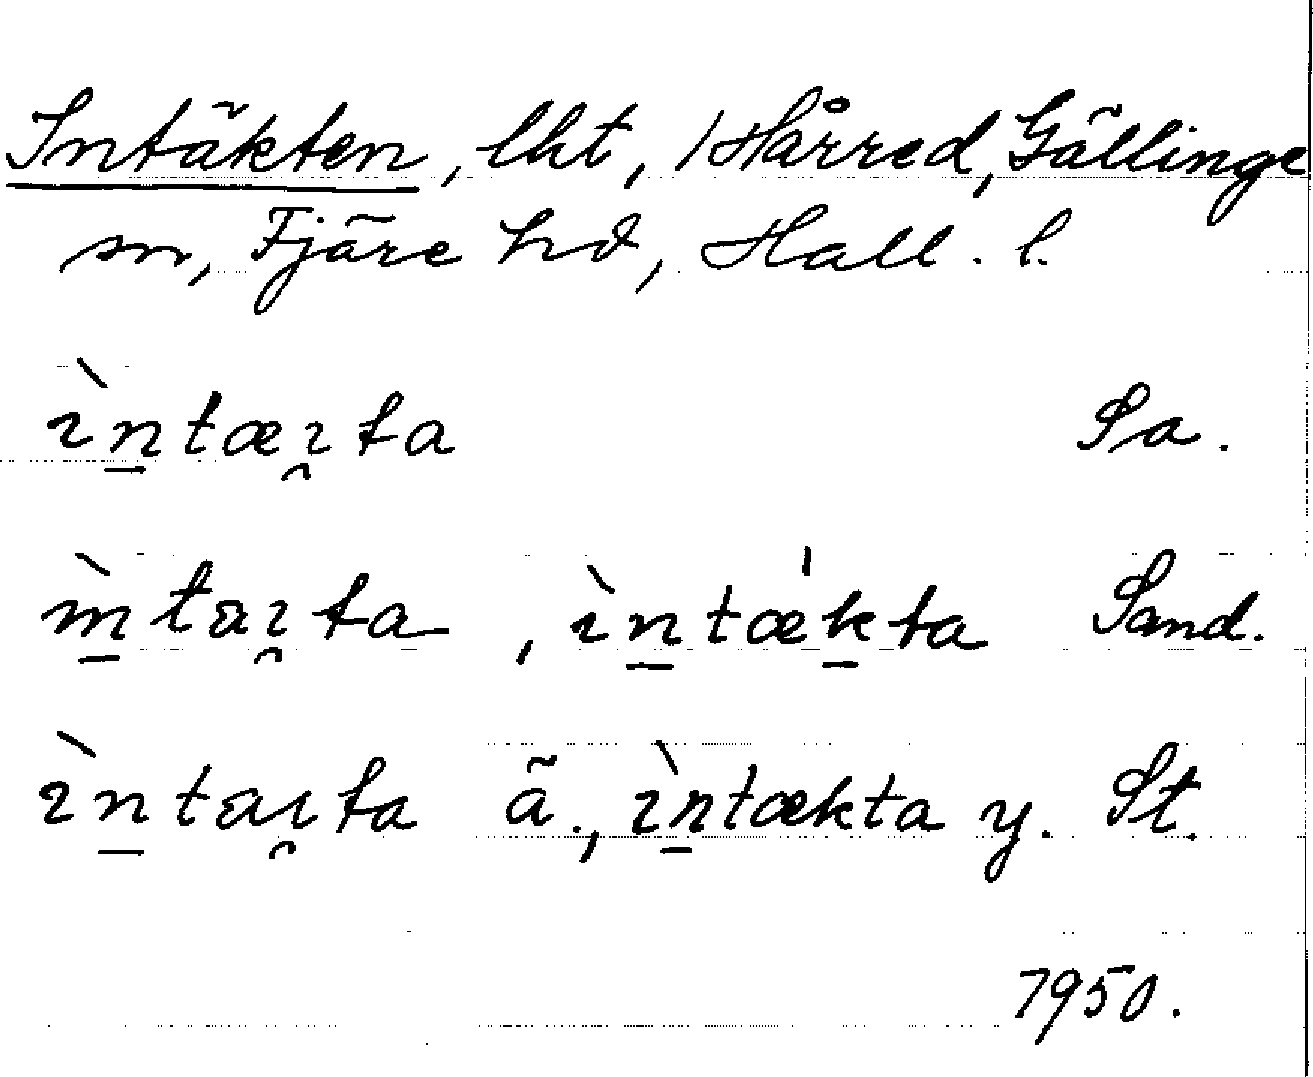 Intäkten, lht, 1 Hårred, Gällinge
sn, Fjäre hd, Hall. l.
ìn̲tæı̯ta Sa.
ìn̲taı̯ta, ìn̲tæ̍k̲ta Sand.
ìn̲taı̯ta ä., ìn̲tækta y. St.
1950.